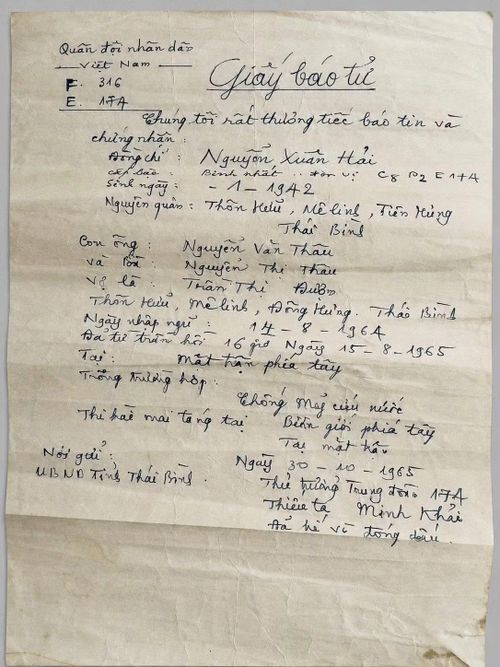 Quân đội nhân dân
Việt Nam
F. 316
E. 17A
Giấy báo tử
Chúng tôi rất thương tiếc báo tin và
chứng nhận:
Đồng chí: Nguyễn Xuân Hải
Cấp bậc: Binh nhất .. đơn vị C8 B2 E17A
Sinh ngày: - 1 - 1942
Nguyên quán: Thôn Hữu, Mê linh, Tiên Hưng
Thái Bình
Con ông: Nguyễn Văn Thâu
và Bà: Nguyễn Thị Thâu
Vợ là: Trần Thị Đượm
Thôn Hưu, Mê linh, Đông Hưng. Thái Bình
Ngày nhập ngũ: 14 - 8 - 1964
Đã từ trần hồi 16 giờ Ngày 15 - 8 - 1965
Tại: mặt trận phía tây
Trong trường hợp:
Chống Mỹ cứu nước
Thi hài mai táng tại Biên giới phía tây
Tại mặt trận
Ngày 30 - 10 - 1965
Nơi gửi:
UBND Tỉnh Thái Bình.
Thủ trưởng Trung đoàn 17A
Thiếu tá Minh Khải
Đã kí và đóng dấu.